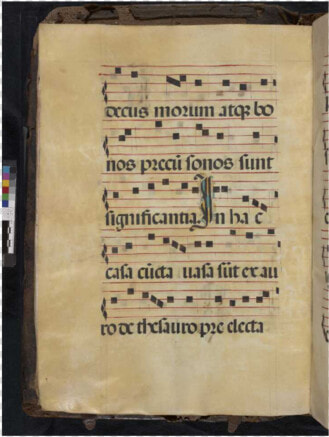 decus morum atqȝ bo
nos precū sonos sunt
significantia. In ha c
casa cūcta uasa sūt ex au
ro de thesauro pre electa